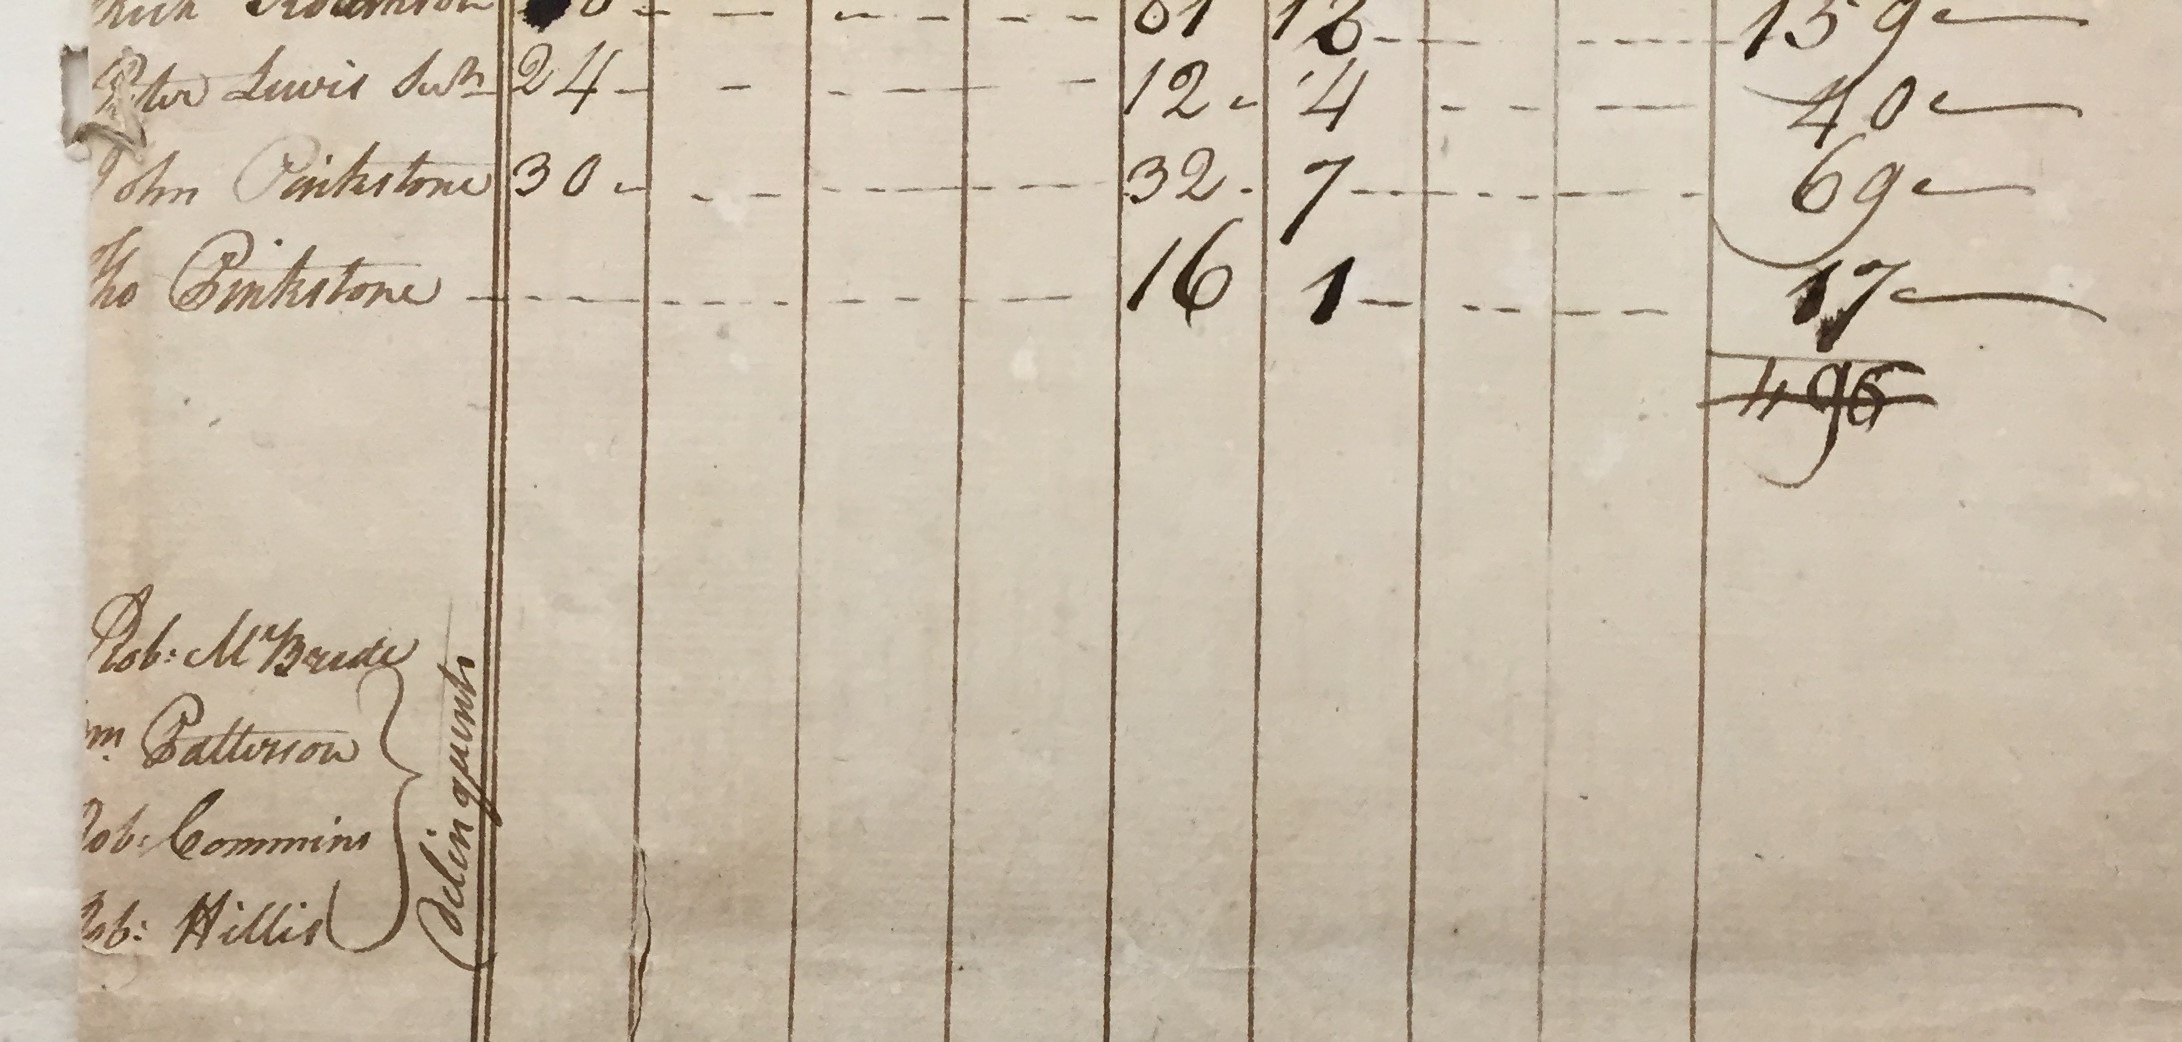 Rich Robinson 0 61 12 159
Peter Lewis 24 12 4 40
John Pinkstone 30 32 7 69
Tho Pinkstone 16 1 17
496
Rob: McBride
Wm. Patterson
Rob: Commins
Rob: Hillis
delinquents